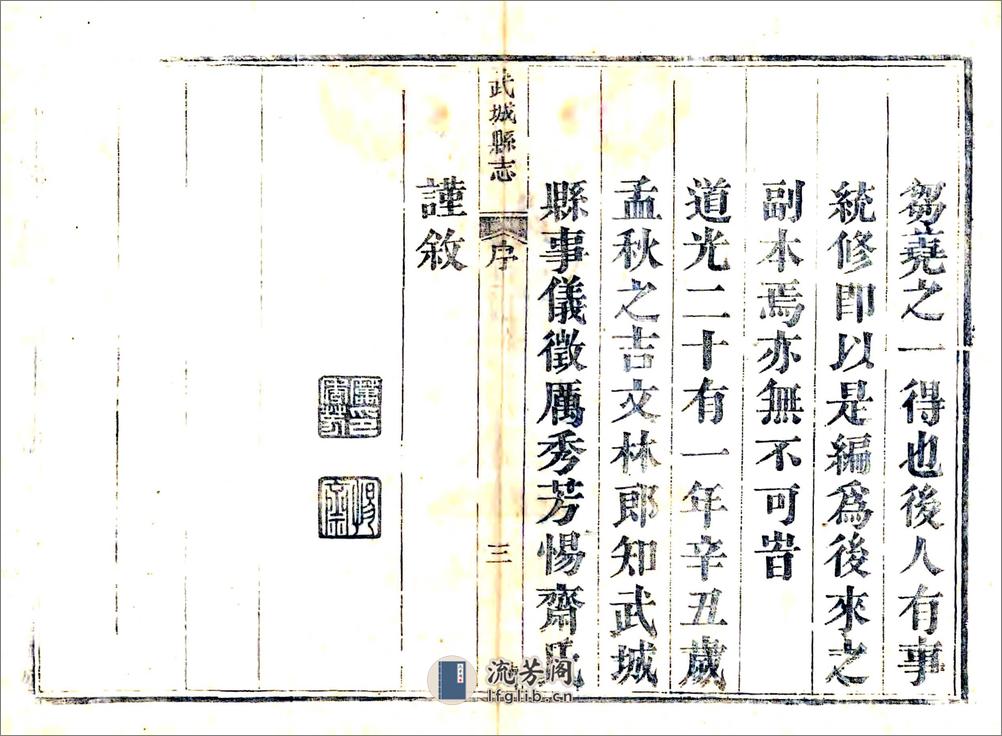 芻蕘之一得也後人有事
統修即以是編爲後來之
副本焉亦無不可旹
道光二十有一年辛丑歲
孟秋之吉文林郎知武城
縣事儀徵厲秀芳惕齋氏
武城縣志 序 三
謹敘
厲印秀芳
惕齋
流芳阁
lfglib.cn